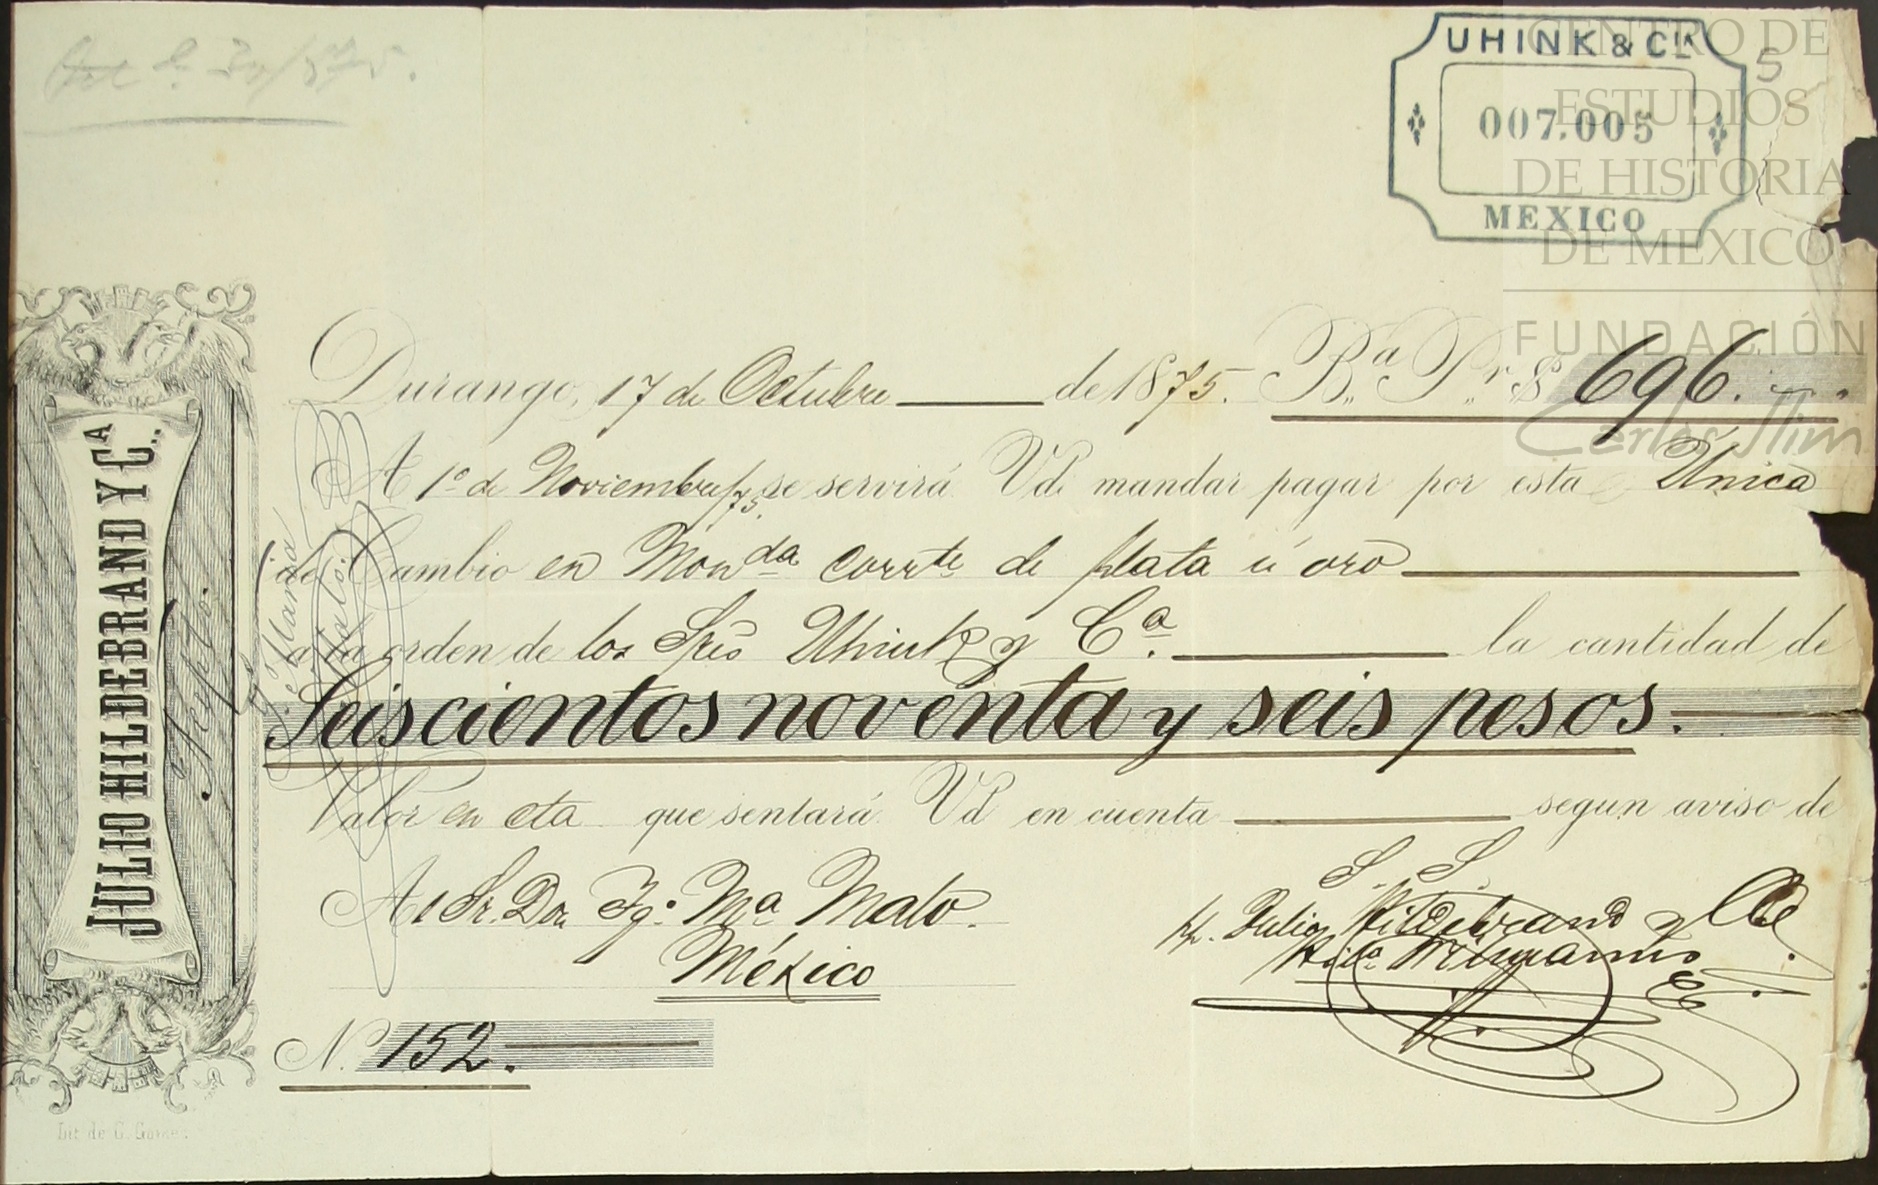 UHINK & Cía
5
007.005
MEXICO
CENTRO DE
ESTUDIOS
DE HISTORIA
DE MEXICO
FUNDACIÓN
Carlos Slim
JULIO HILDEBRAND Y Cª.
Durango, 17 de Octubre de 1875. Bª. Pr. $ 696.
A 1º de Noviembre/75 se servirá Vd. mandar pagar por esta Única
de Cambio en Monda corrte de plata ú oro
a la orden de los Sres Uhink y Cª. la cantidad de
Seiscientos noventa y seis pesos.
Valor en cta que sentará Vd en cuenta segun aviso de
S. S.
Al Sr. Don Fº. Mª Malo.
México
p. Julio Hildebrand y Ce.
Nº 152.
Lit de G. Gomez